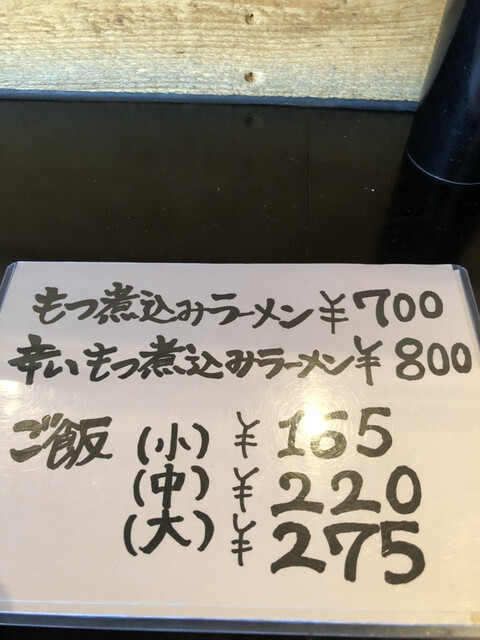 もつ煮込みラーメン ¥700
辛いもつ煮込みラーメン ¥800
ご飯 (小) ¥165
(中) ¥220
(大) ¥275